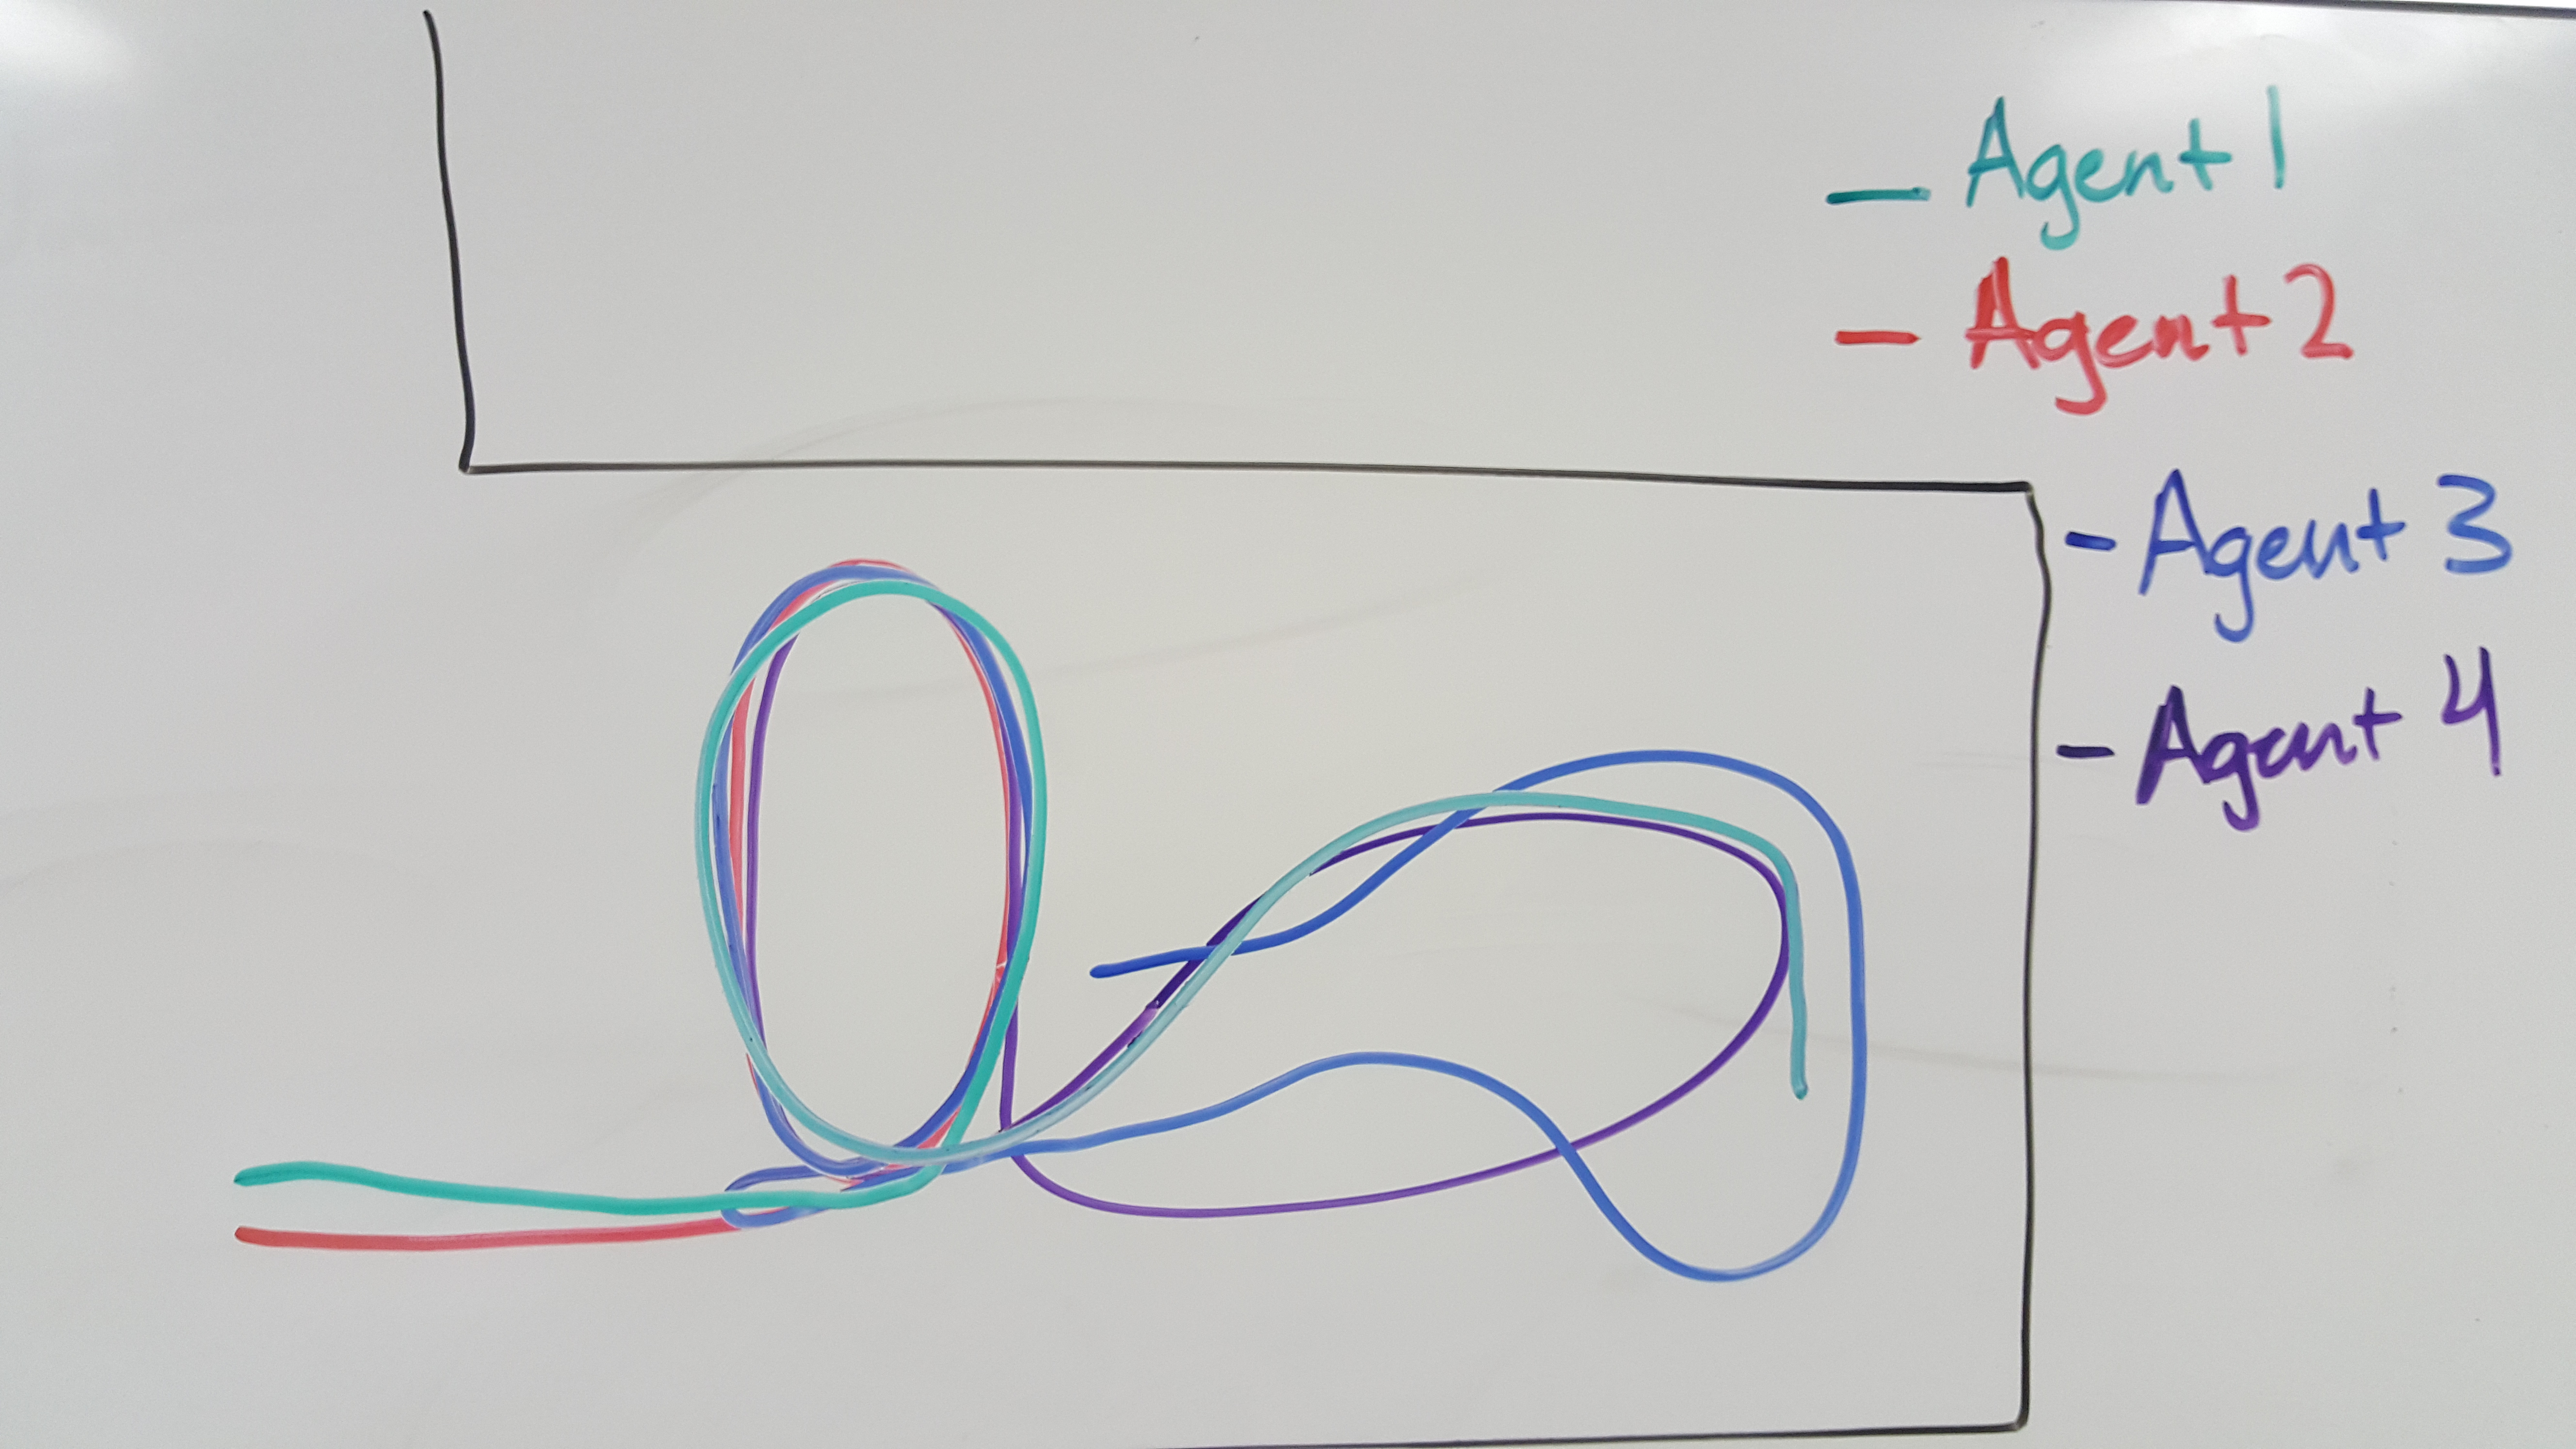 - Agent 1
- Agent 2
- Agent 3
- Agent 4